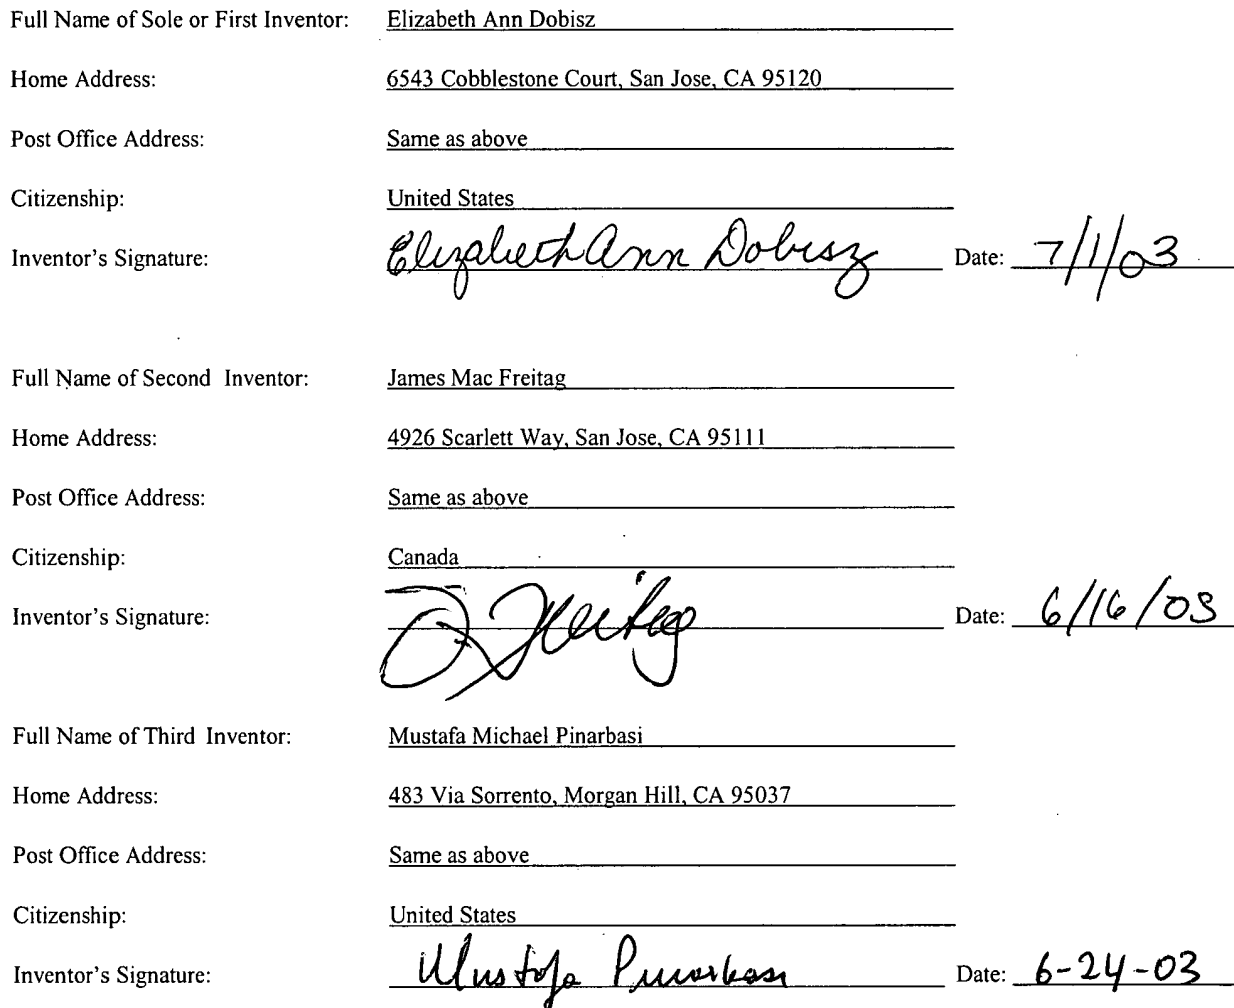 Full Name of Sole or First Inventor: Elizabeth Ann Dobisz
Home Address: 6543 Cobblestone Court, San Jose, CA 95120
Post Office Address: Same as above
Citizenship: United States
Inventor's Signature: Elizabeth Ann Dobisz Date: 7/1/03
Full Name of Second Inventor: James Mac Freitag
Home Address: 4926 Scarlett Way, San Jose, CA 95111
Post Office Address: Same as above
Citizenship: Canada
Inventor's Signature: J Freitag Date: 6/16/03
Full Name of Third Inventor: Mustafa Michael Pinarbasi
Home Address: 483 Via Sorrento, Morgan Hill, CA 95037
Post Office Address: Same as above
Citizenship: United States
Inventor's Signature: Mustafa Pinarbasi Date: 6-24-03